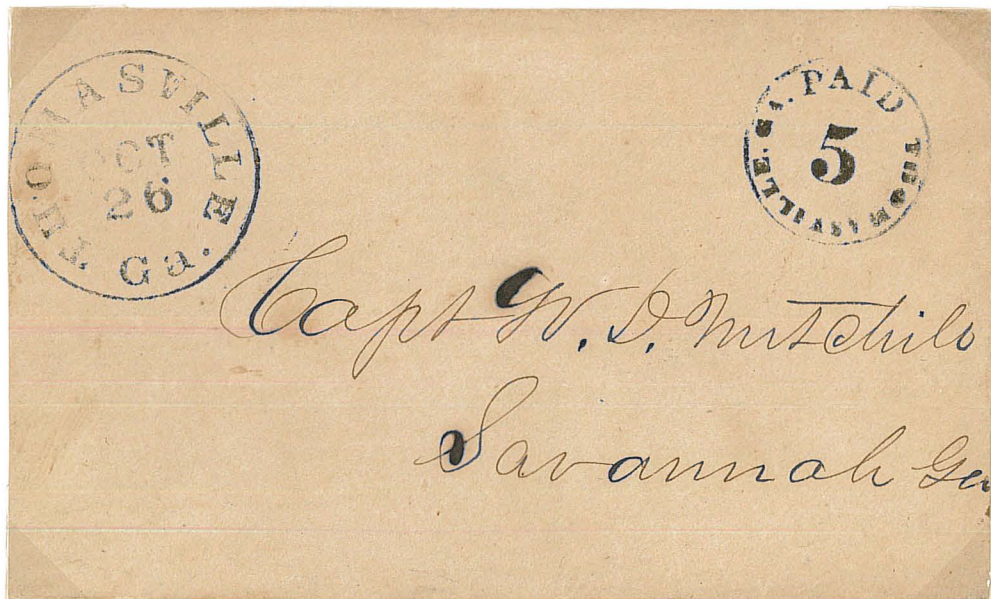 THOMASVILLE Ga.
OCT
26
PAID
5
THOMASVILLE. GA.
Capt W. D. Mitchell
Savannah Ga